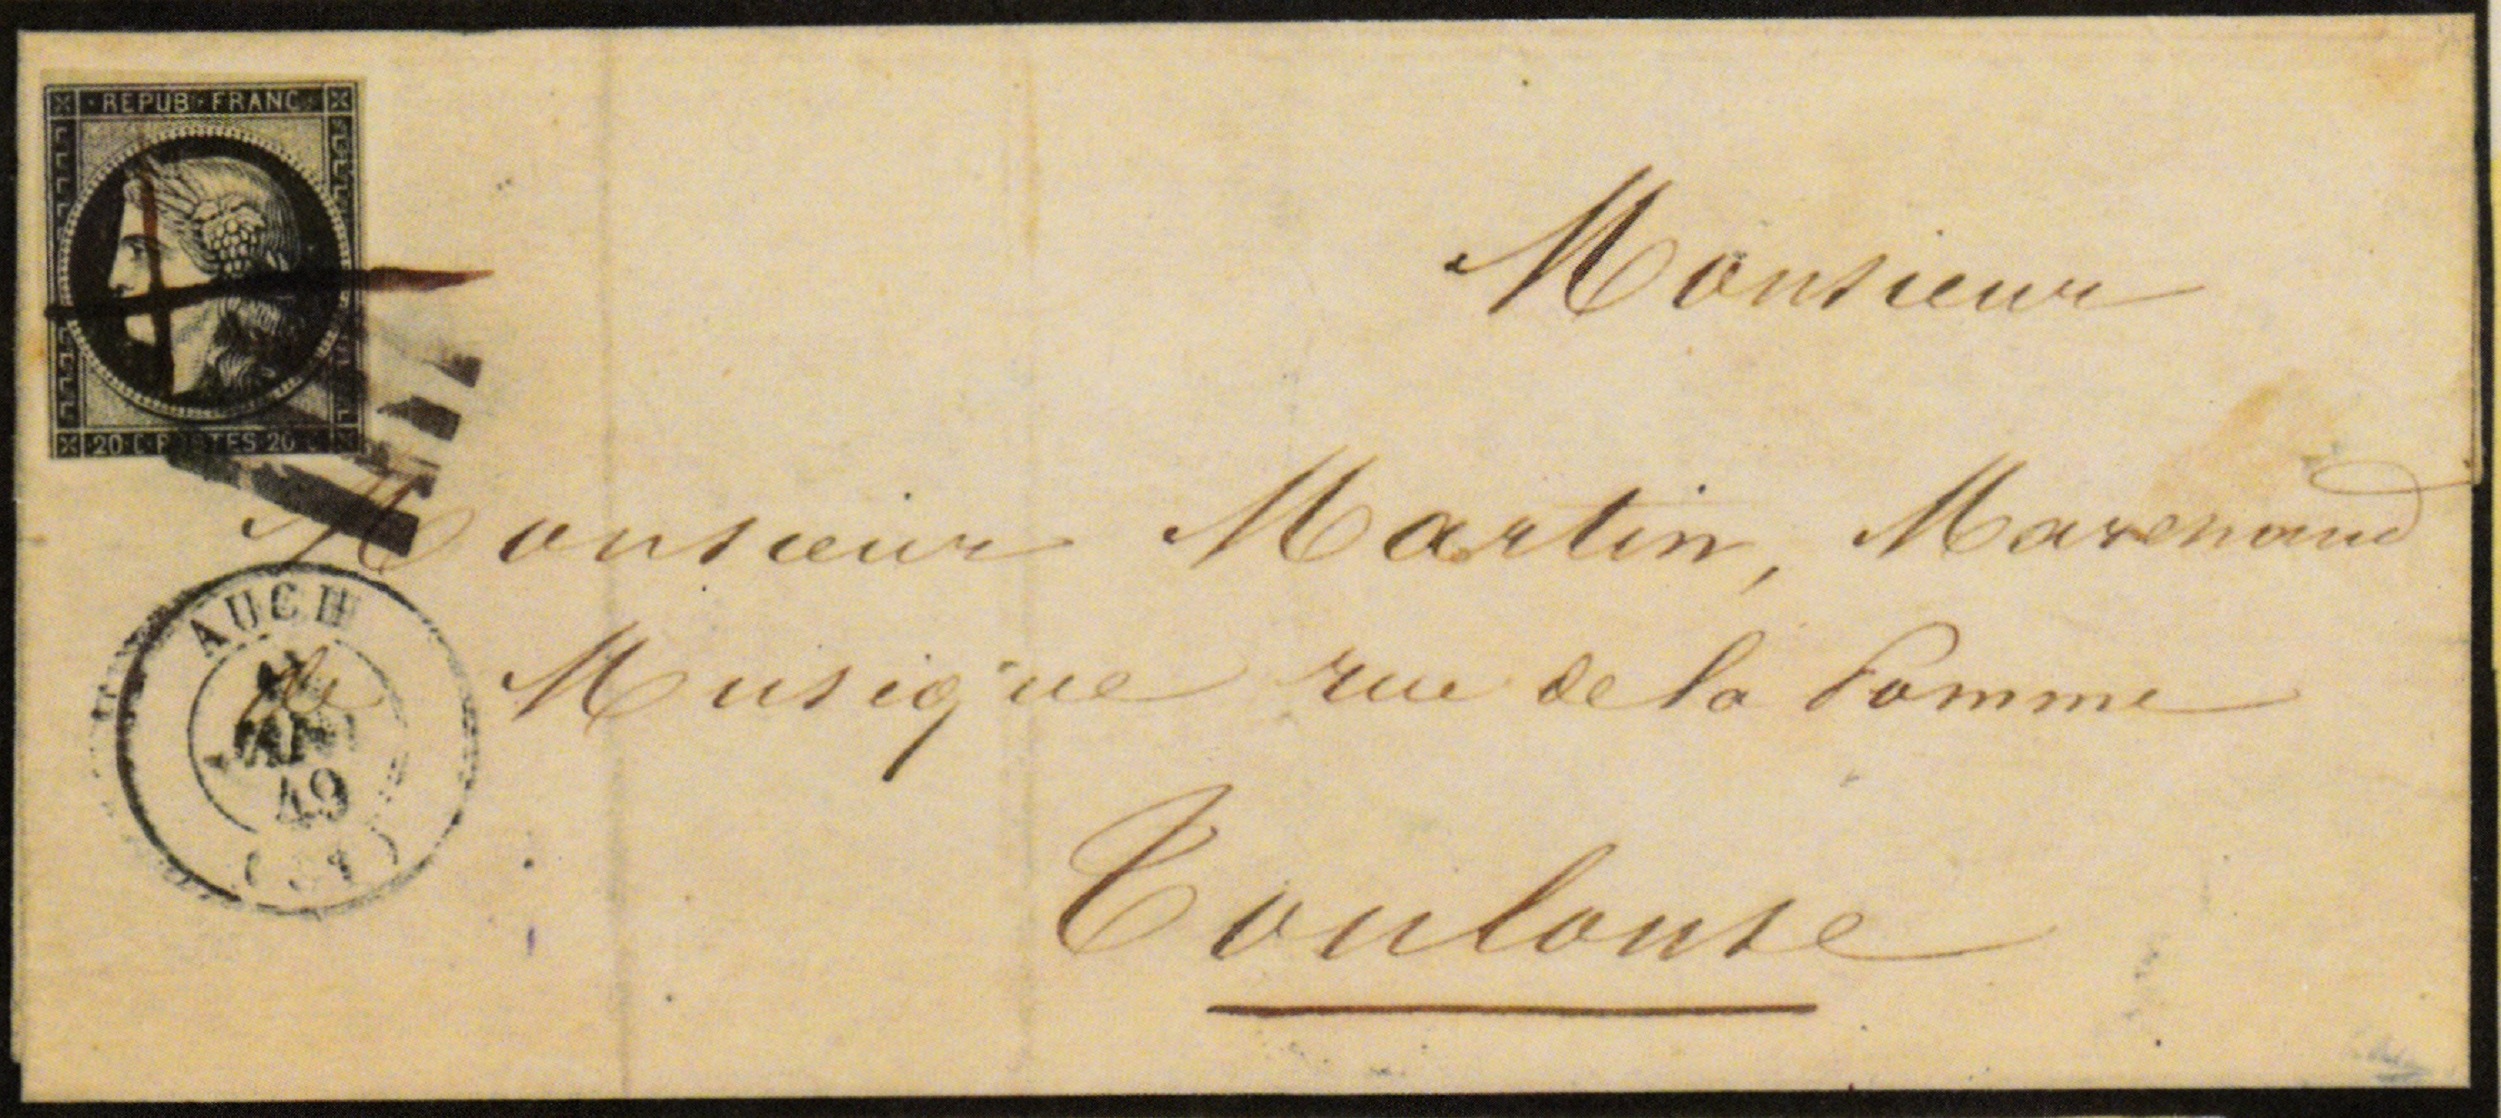 REPUB · FRANC
20 · C · POSTES · 20 · C
Monsieur
Monsieur Martin, Marchand
de Musique rue de la Pomme
Toulouse
AUCH
49
(31)